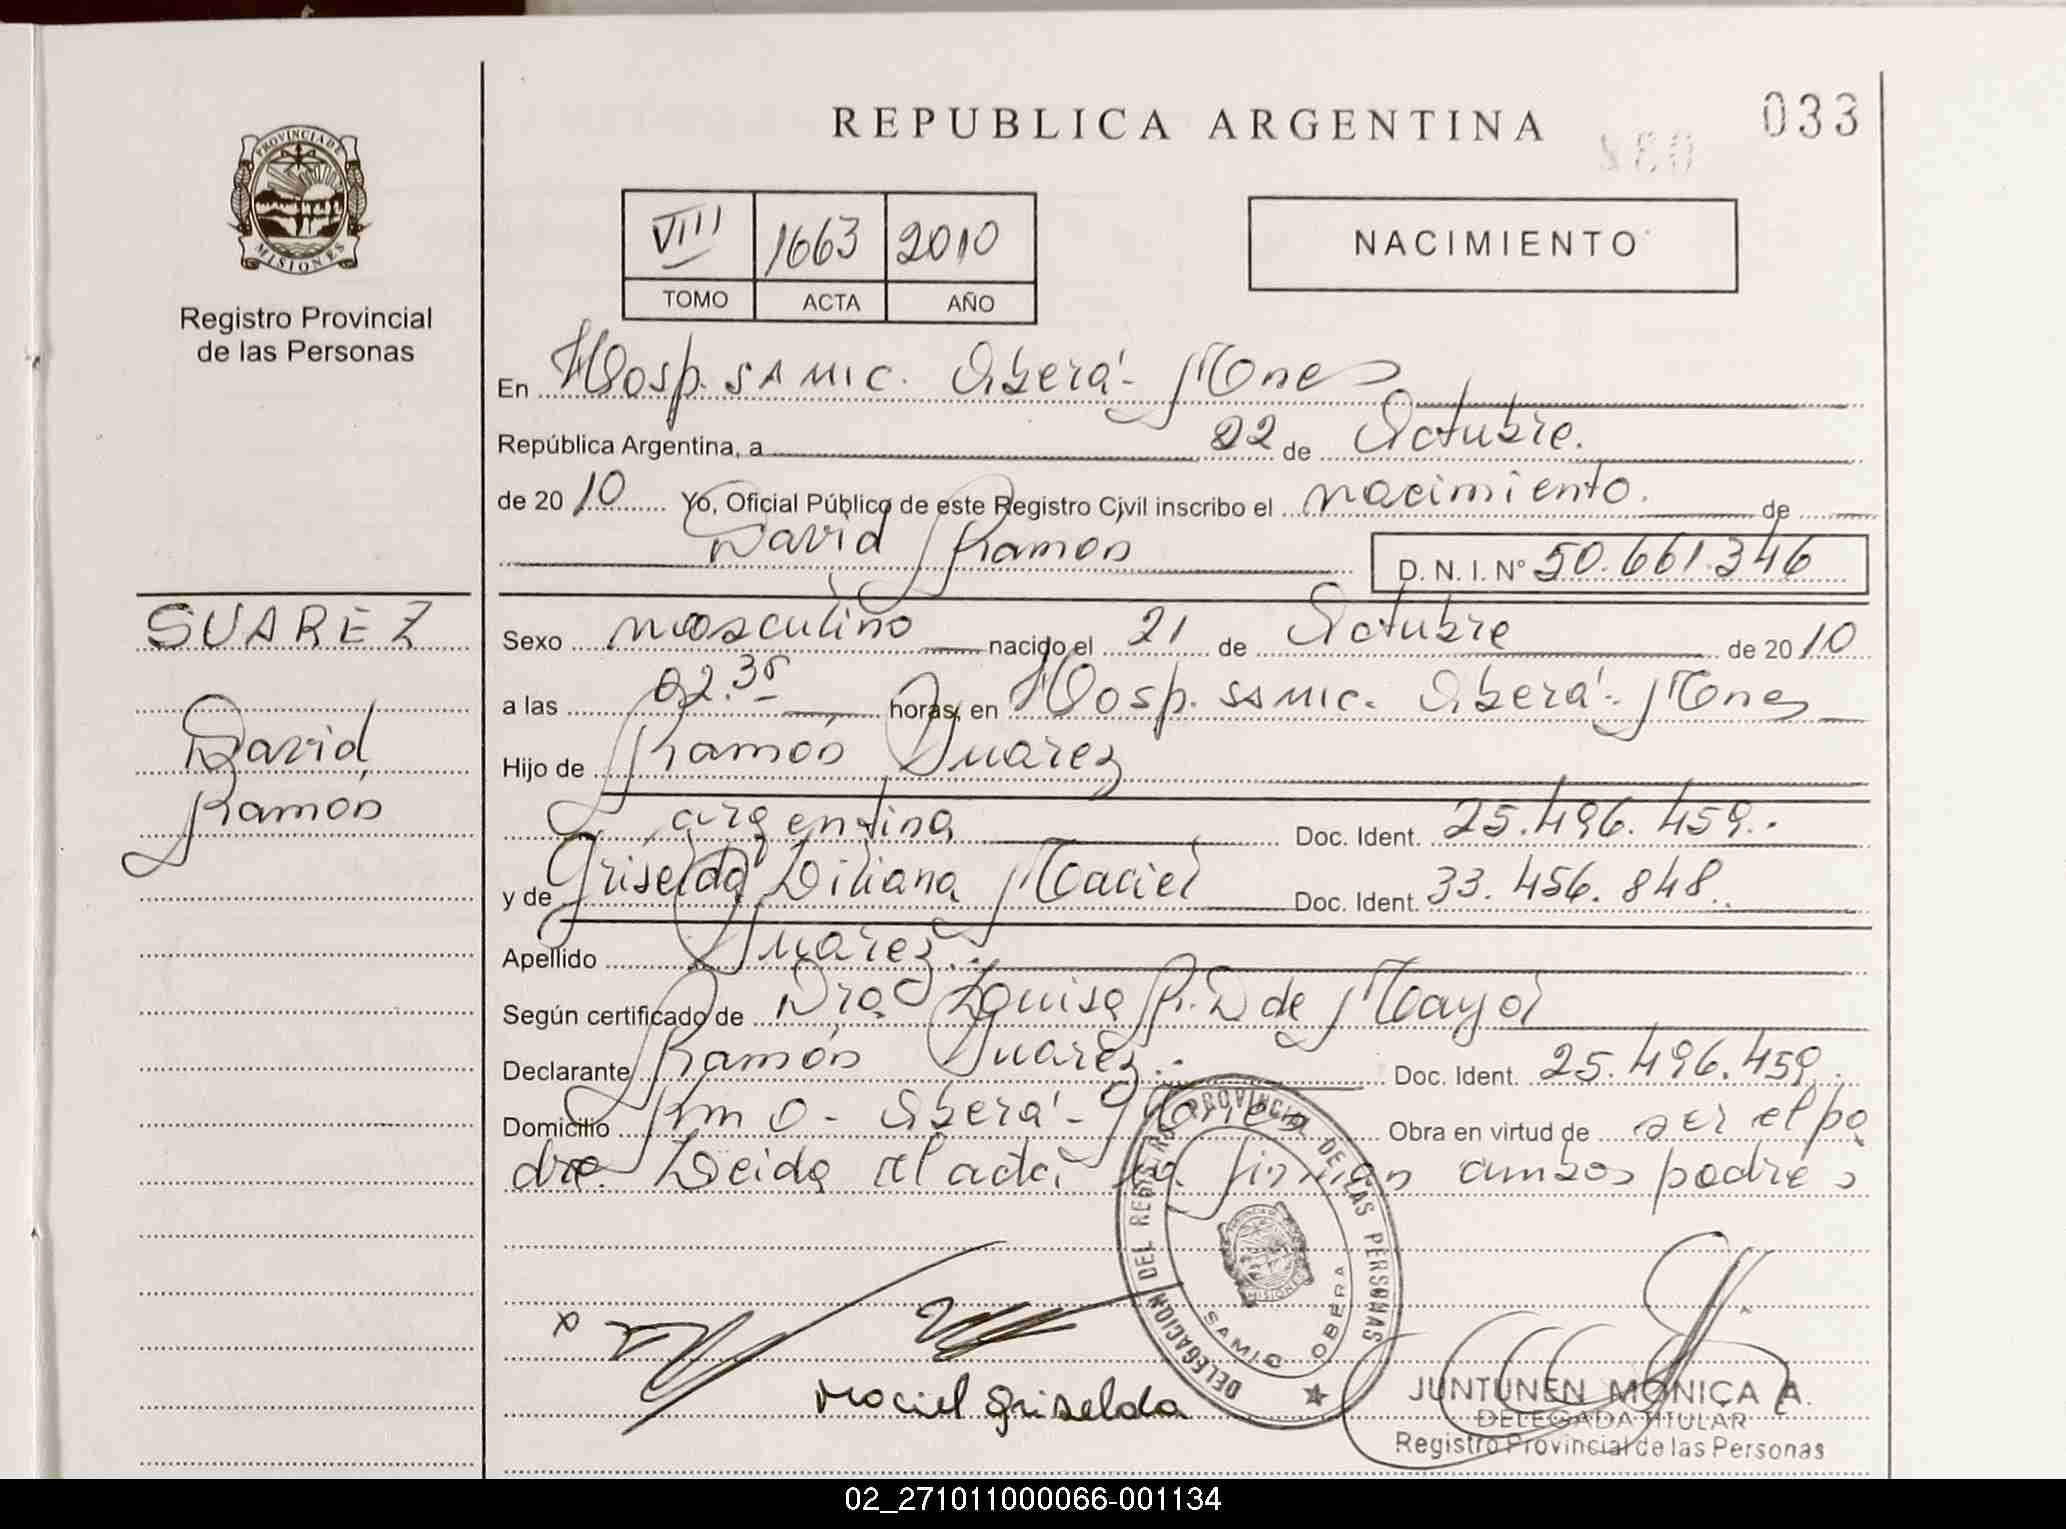 REPUBLICA ARGENTINA
033
PROVINCIA DE
MISIONES
Registro Provincial
de las Personas
VIII 1663 2010
TOMO ACTA AÑO
NACIMIENTO
En Hosp. SAMIC. Oberá - Mnes
República Argentina, a 22 de Octubre.
de 2010 Yo, Oficial Público de este Registro Civil inscribo el nacimiento. de
David Ramón D. N. I. N° 50.661.346
SUAREZ
David
Ramón
Sexo masculino nacido el 21 de Octubre de 2010
a las 02.35 horas, en Hosp. SAMIC. Oberá - Mnes
Hijo de Ramón Suarez
argentina Doc. Ident. 25.496.459.
y de Griselda Liliana Maciel Doc. Ident. 33.456.848.
Apellido Suarez.
Según certificado de Dra Louisa R. D de Mayol
Declarante Ramón Suarez. Doc. Ident. 25.496.459.
Domicilio Km 0 - Oberá - Mnes Obra en virtud de ser el pa
dre. Leida el acta la firman ambos padres
DELEGACION DEL REGISTRO PROVINCIAL DE LAS PERSONAS
MISIONES
SAMIC OBERA
x
Maciel Griselda
JUNTUNEN MONICA A.
DELEGADA TITULAR
Registro Provincial de las Personas
02_271011000066-001134